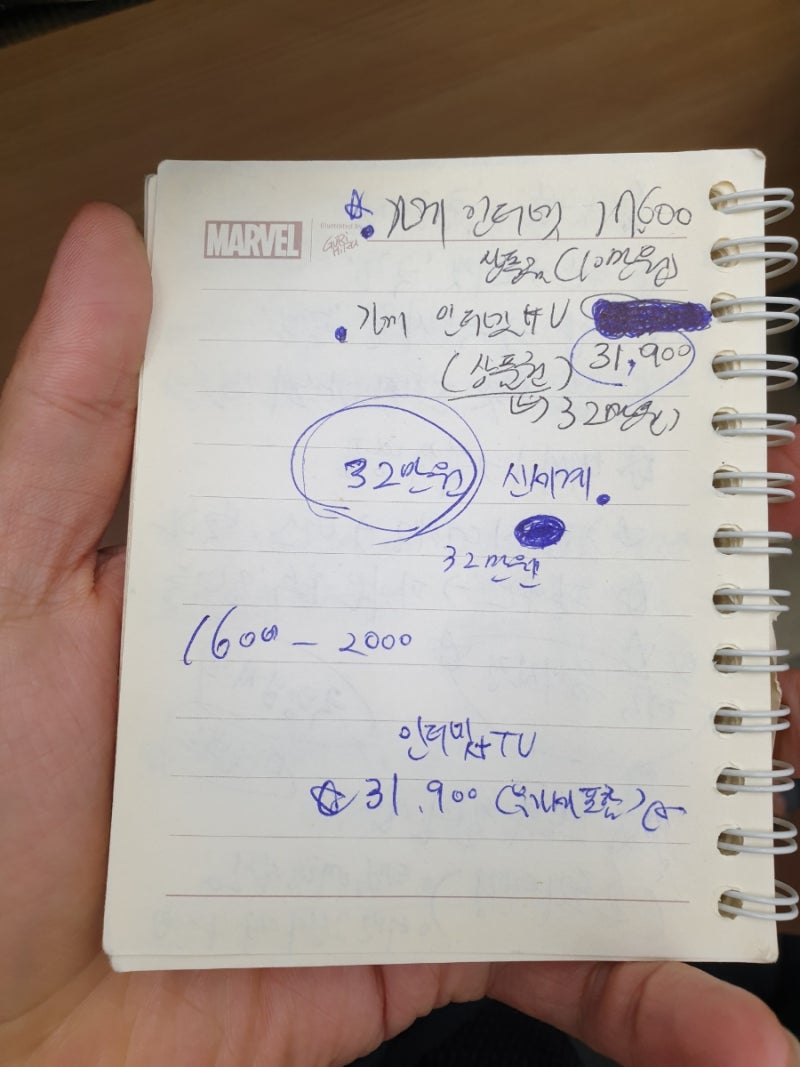 MARVEL
Illustrated by
가게 인터넷 17,600
상품권 (10만원)
가게 인터넷+TV
(상품권) 31,900
32만원)
32만원 신세계
32만원
1600 - 2000
인터넷+TV
31,900 (부가세포함)